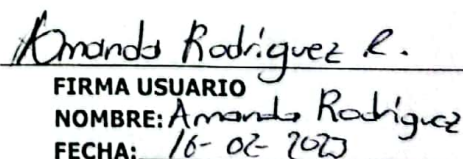 Amanda Rodriguez R.
FIRMA USUARIO
NOMBRE: Amanda Rodriguez
FECHA: 16-02-2023